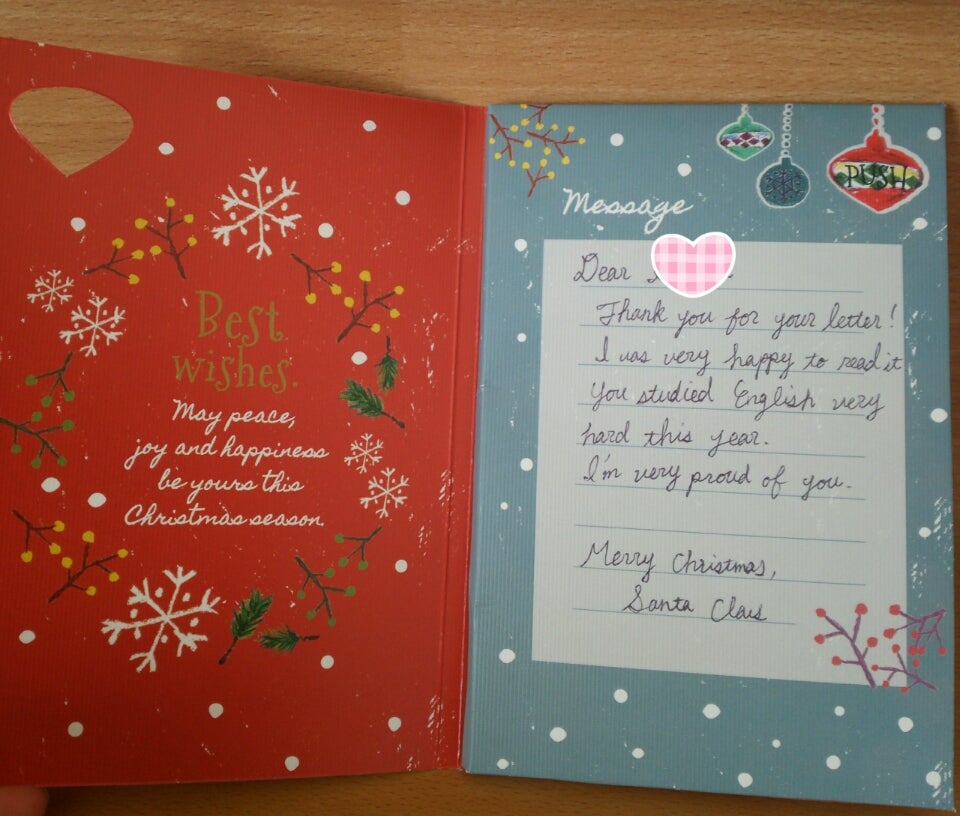 Best
wishes.
May peace,
joy and happiness
be yours this
Christmas season.
PUSH
Message
Dear
Thank you for your letter!
I was very happy to read it
You studied English very
hard this year.
I'm very proud of you.
Merry Christmas,
Santa Claus